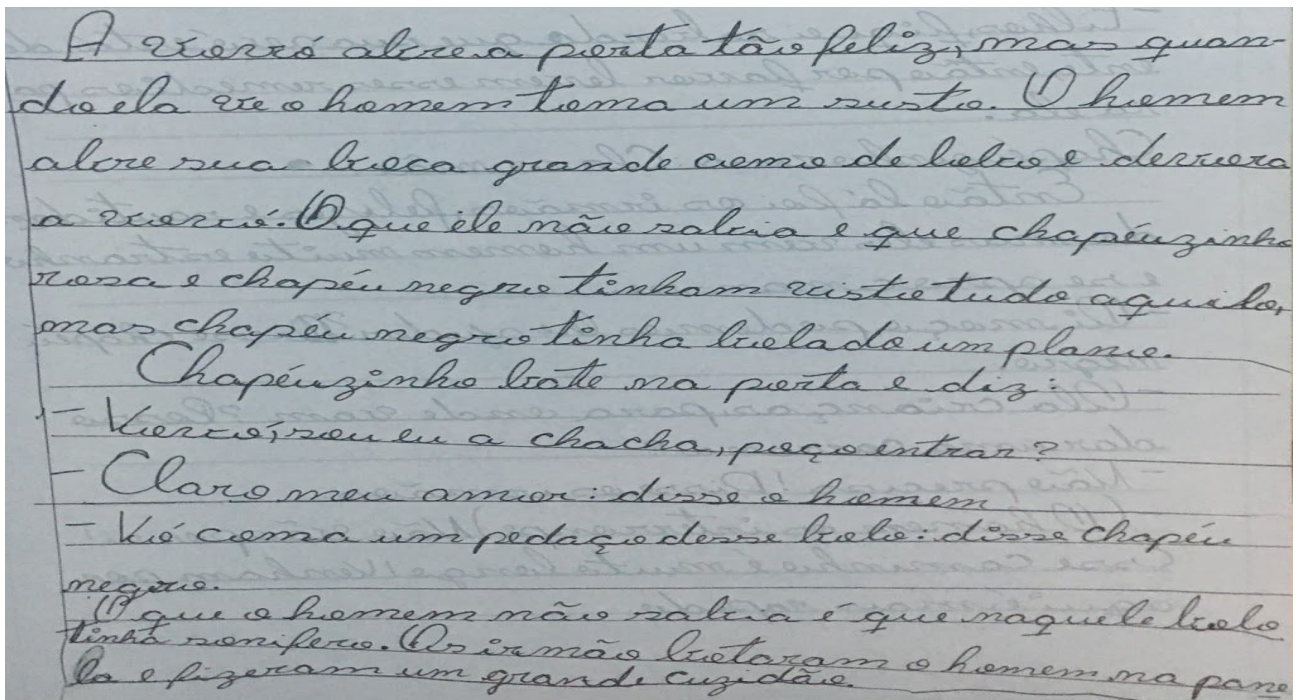 A vovó abre a porta tão feliz, mas quan-
do ela ve o homem toma um susto. O homem
abre sua boca grande como de lobo e devora
a vovó. O que ele não sabia e que chapéuzinho
rosa e chapéu negro tinham visto tudo aquilo,
mas chapéu negro tinha bolado um plano.
Chapéuzinho bate na porta e diz:
- Vovó, sou eu a chacha, poço entrar?
- Claro meu amor: disse o homem
- Vó coma um pedaço desse bolo: disse chapéu
negro.
O que o homem não sabia é que naquele bolo
tinha sonifero. Os irmão botaram o homem na pane
la e fizeram um grande cuzidão.